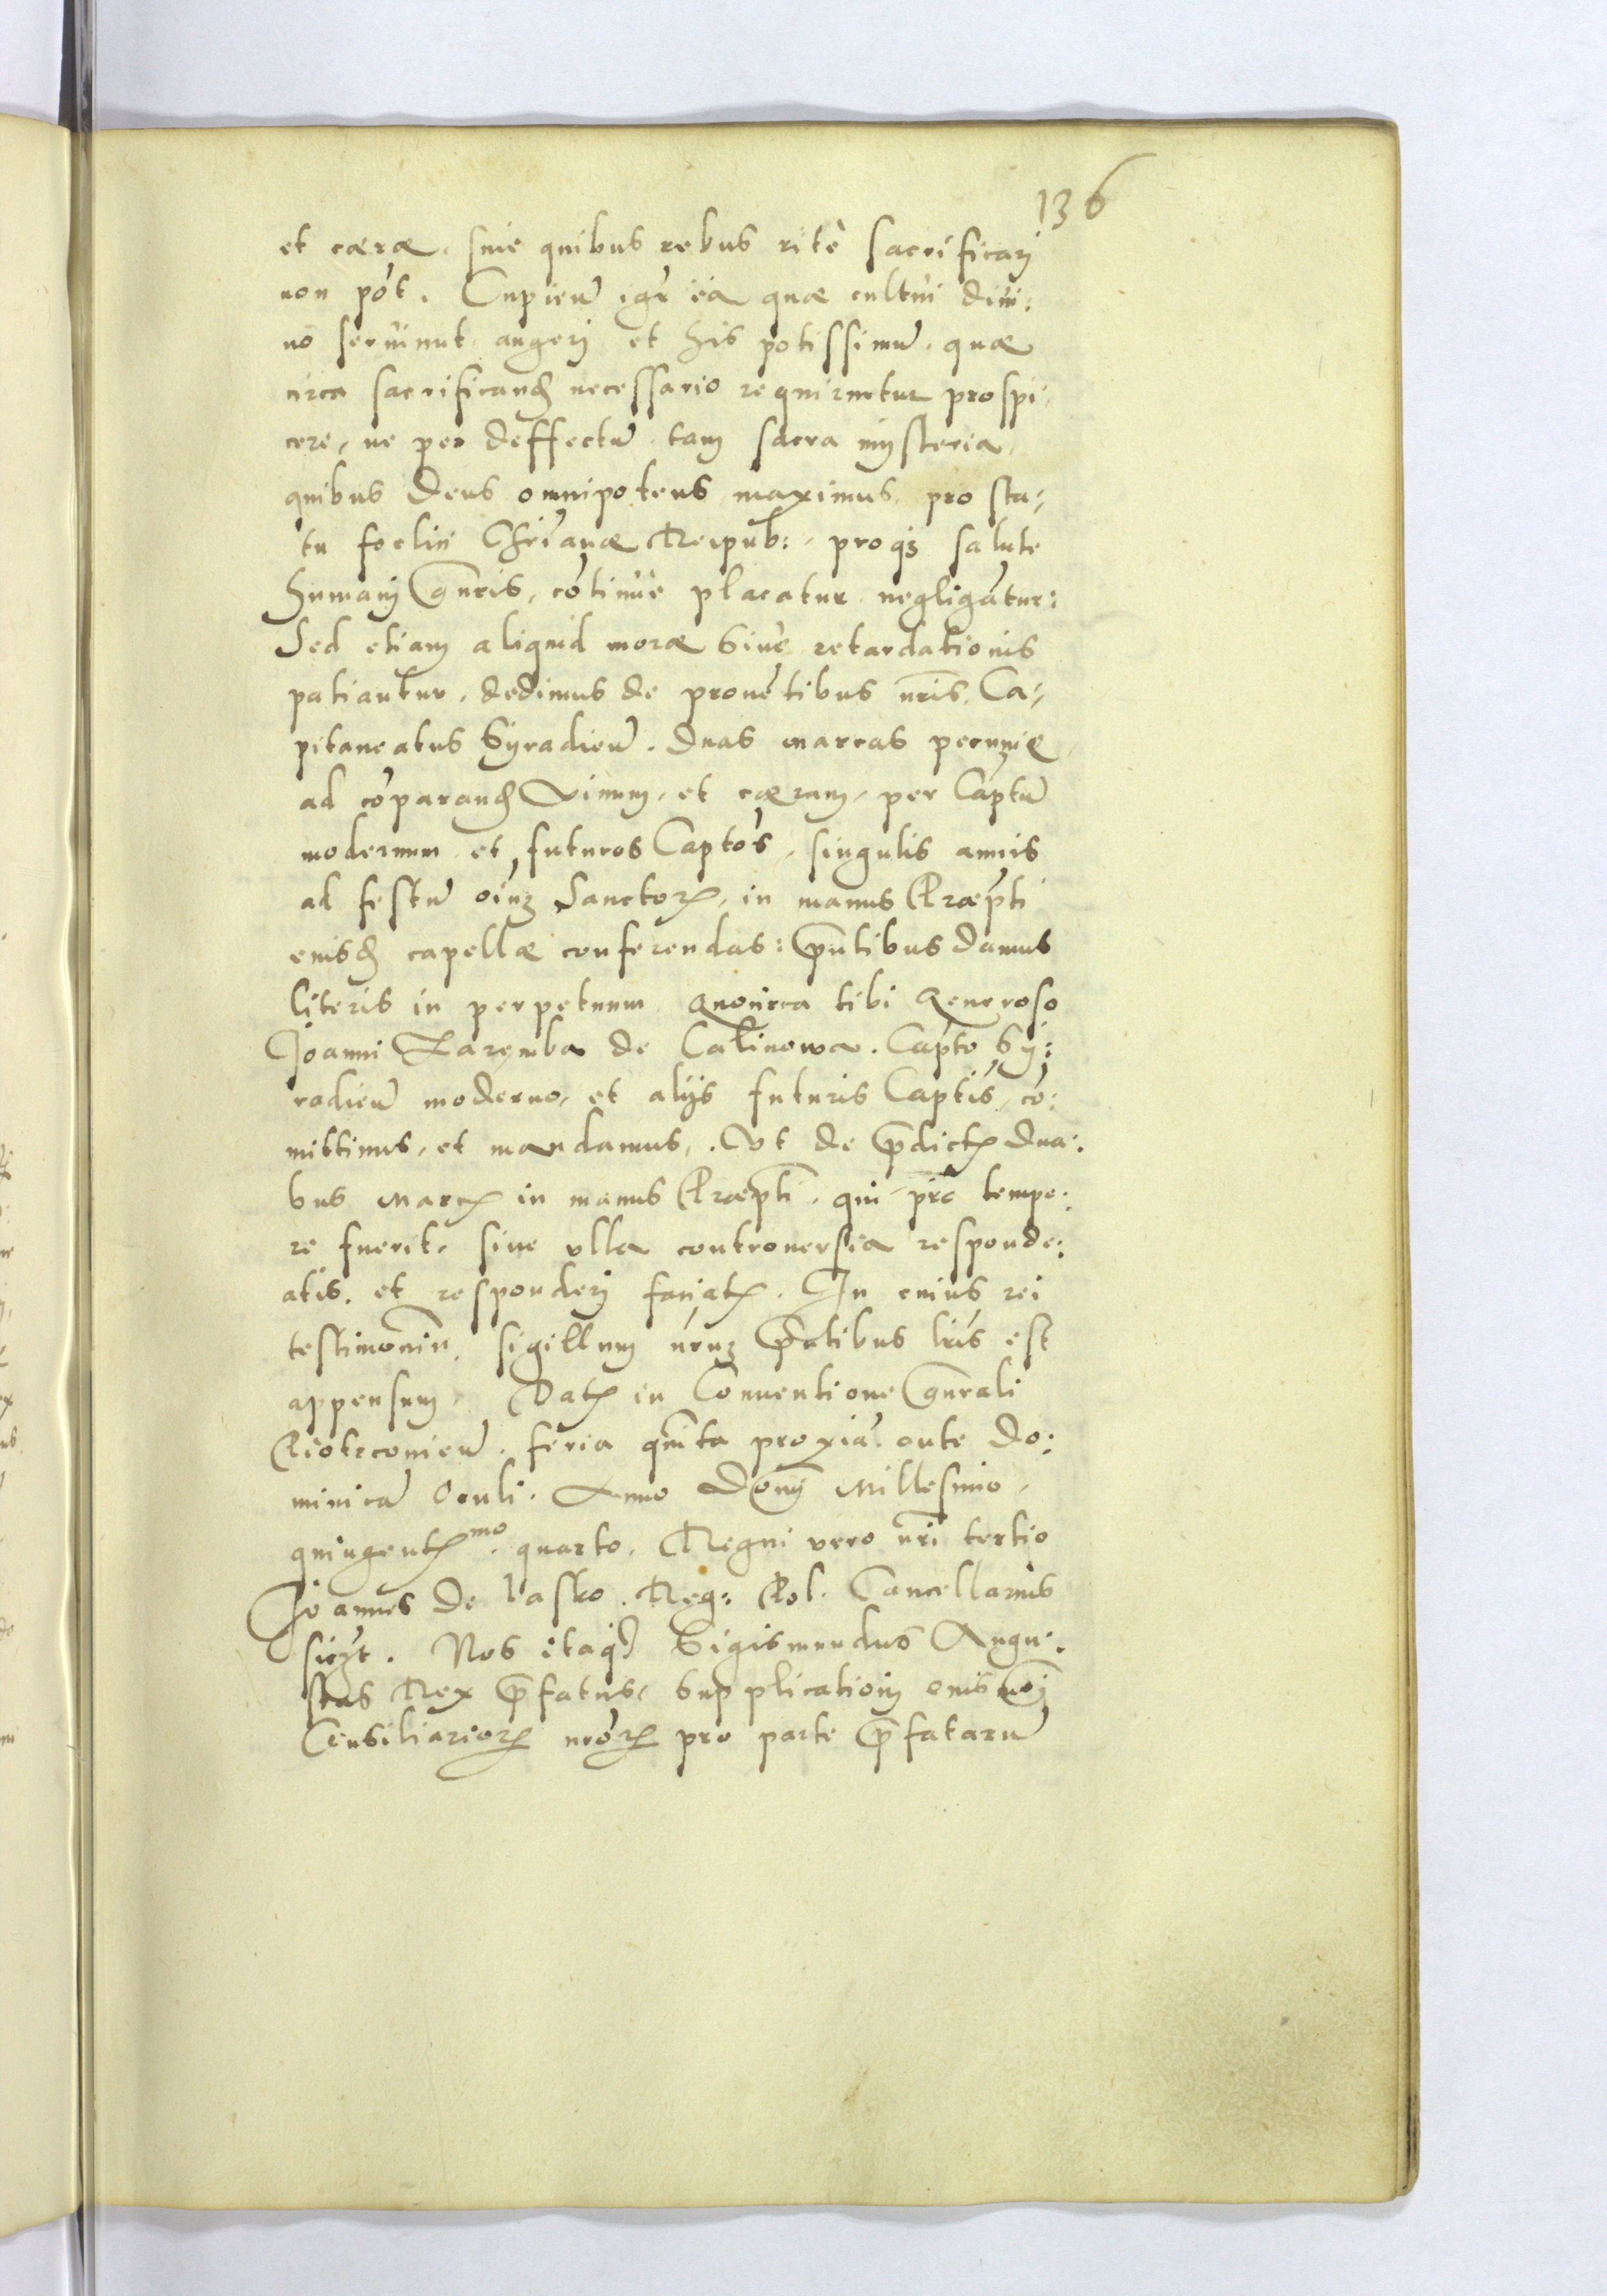 136
et cæræ. sine quibus rebus ritè sacrificarj
non põt. Cupieñ igr̃ ea quæ cultui diui:
no seruiunt augerj et his potissimũ. quæ
circa sacrificanđ necessario requirũtur prospi,
cere, ne per deffectũ tam sacra mysteria,
quibus Deus omnipotens maximus, pro sta,
tu foelici Chr̃ianæ Reipub: proqз salute
humanj gñris, cõtinuè placatur negligãtur:
Sed etiam aliquid moræ siue retardationis
patiantur. dedimus de prouẽtibus nr̃is Ca,
pitaneatus Syradieñ. duas marcas pecuniæ
ad cõparanđ Vinum, et cæram, per Captũ
modernum et futuros Captõs, singulis annis
ad festũ oĩuз Sanctorꝝ, in manus Præpti
eiusđ capellæ conferendas: p̃ntibus damus
literis in perpetuum Quocirca tibi Generoso
Joanni Zaremba de Calinowa. Capto Sy:
radieñ moderno, et alijs futuris Captis, cõ:
mittimus, et mandamus, Vt de p̃dictꝭ dua:
bus Marcꝭ in manus Præpti, qui pro tempo:
re fuerit, sine vlla controuersia responde:
atis. et responderj faciatꝭ. In cuius rei
testimoniũ sigillum nr̃uз p̃ntibus lr̃is est
appensum. Datꝭ in Conuentione gñrali
Piotrcouieñ. feria quĩta proxiã ante Do:
minicã Oculi. Anno Dõnj Millesimo,
quingentꝭmo. quarto. Regni vero nr̃i tertio
Joannes de Lasko. Reg: Pol. Cancellarius
sczt. Nos itaqз Sigismundus Augu:
stus Rex p̃fatus, supplicationj eiusmõj
Consiliariorꝝ nr̃õrꝝ pro parte p̃fatarũ